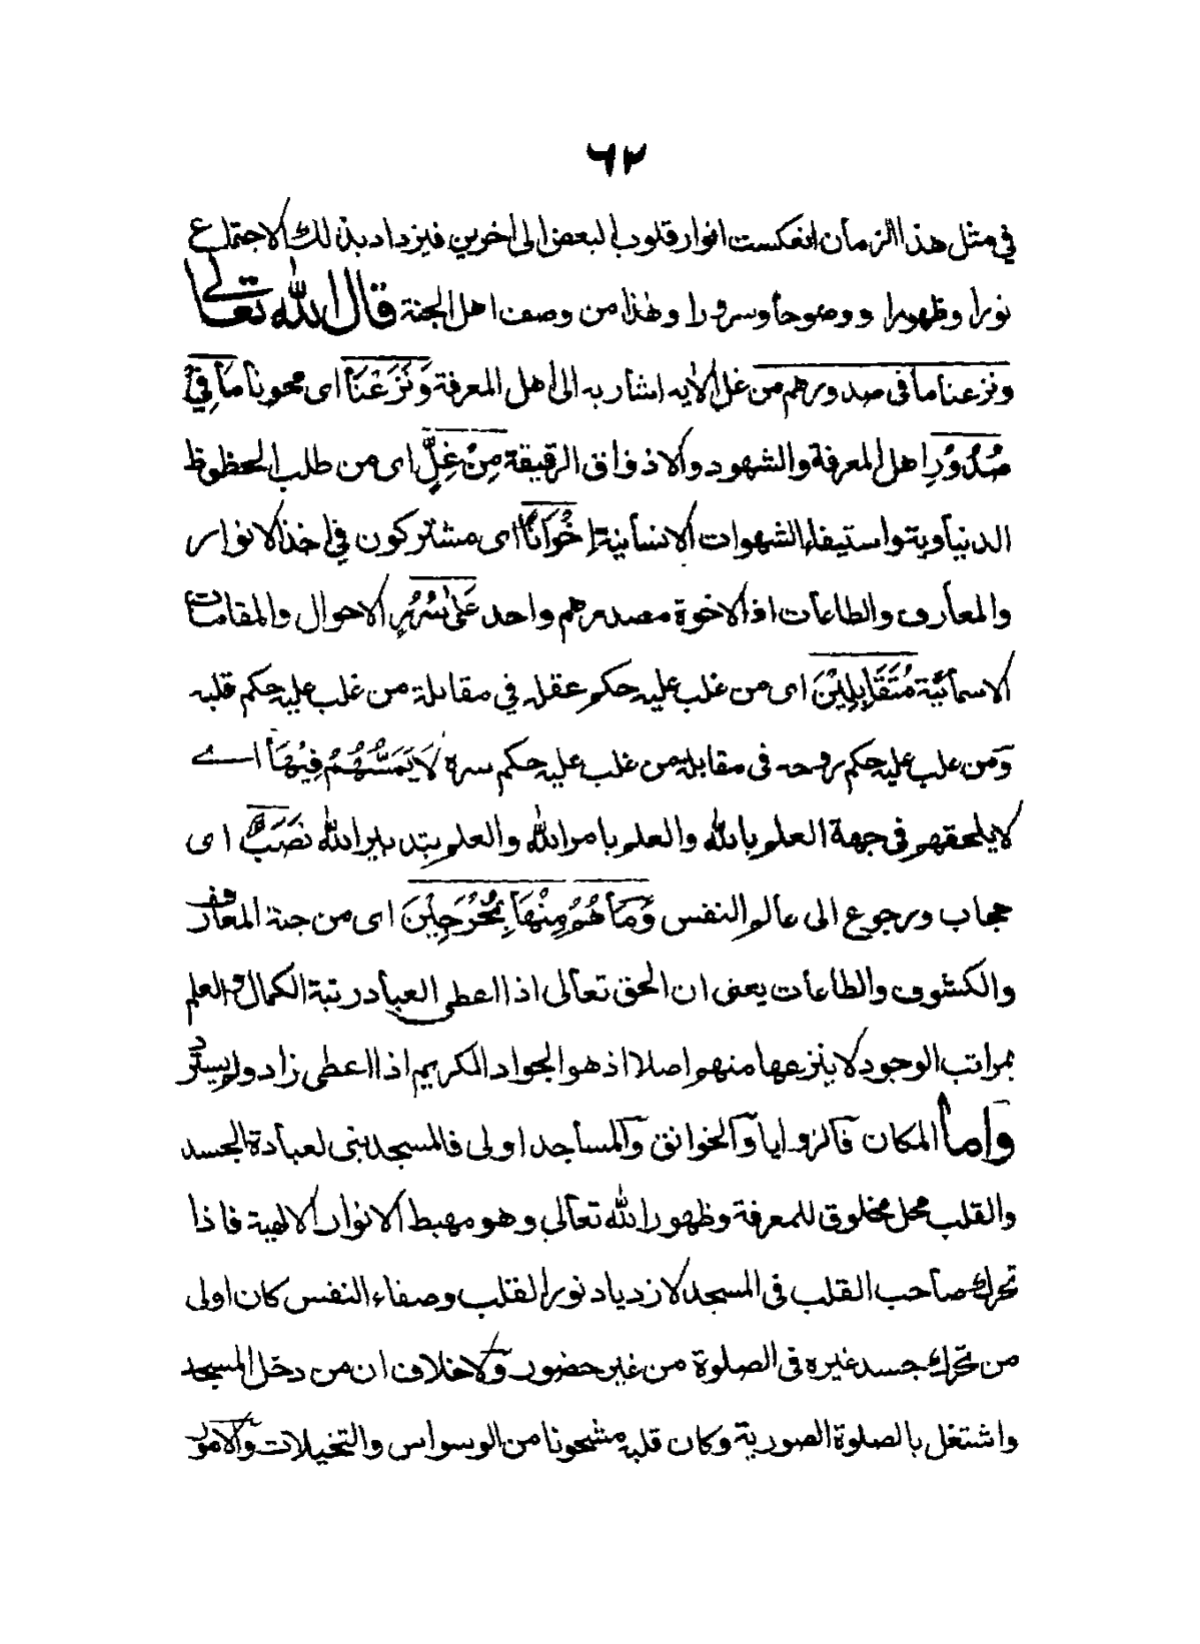 ٦٢
في مثل هذا الزمان انعكست انوار قلوب البعض الى اخرين فيزداد بذلك الاجتماع
نورا وظهورا ووضوحا وسرورا وهذا من وصف اهل الجنة قال الله تعالى
ونزعنا ما فى صدورهم من غل الأيه اشار به الى اهل المعرفة وَنَزَعْنَا اى محونا مَا فِيْ
صُدُوْرِ اهل المعرفة والشهود والاذواق الرقيقة مِنْ غِلٍّ اى من طلب الحظوظ
الدنياوية واستيفاء الشهوات الانسانية إِخْوَانًا اى مشتركون في اخذ الانوار
والمعارف والطاعات اذ الاخوة مصدرهم واحد عَلىٰ سُرُرٍ الاحوال والمقامات
الاسمائية مُتَقَابِلِيْنَ اى من غلب عليه حكم عقله في مقابلة من غلب عليه حكم قلبه
وَمن غلب عليه حكم روحه فى مقابلة من غلب عليه حكم سره لَا يَمَسُّهُمْ فِيْهَا اے
لا يلحقهم فى جهة العلم بالله والعلم بامر الله والعلم بتدبير الله نَصَبٌ اى
حجاب ورجوع الى عالم النفس وَمَا هُمْ مِنْهَا بِمُخْرَجِيْنَ اى من جنة المعارف
والكشوف والطاعات يعنى ان الحق تعالى اذا اعطى العباد رتبة الكمال والعلم
بمراتب الوجود لا ينزعها منهم اصلا اذ هو الجواد الكريم اذا اعطى زاد ولم يسترد
واما المكان فالزوايا والخوانق والمساجد اولى فالمسجد بنى لعبادة الجسد
والقلب محل مخلوق للمعرفة وظهور الله تعالى وهو مهبط الانوار الالهية فاذا
تحرك صاحب القلب فى المسجد لازدياد نور القلب وصفاء النفس كان اولى
من تحرك جسد غيره فى الصلوة من غير حضور ولاخلاف ان من دخل المسجد
واشتغل بالصلوة الصورية وكان قلبه مشحونا من الوسواس والتخيلات والامور